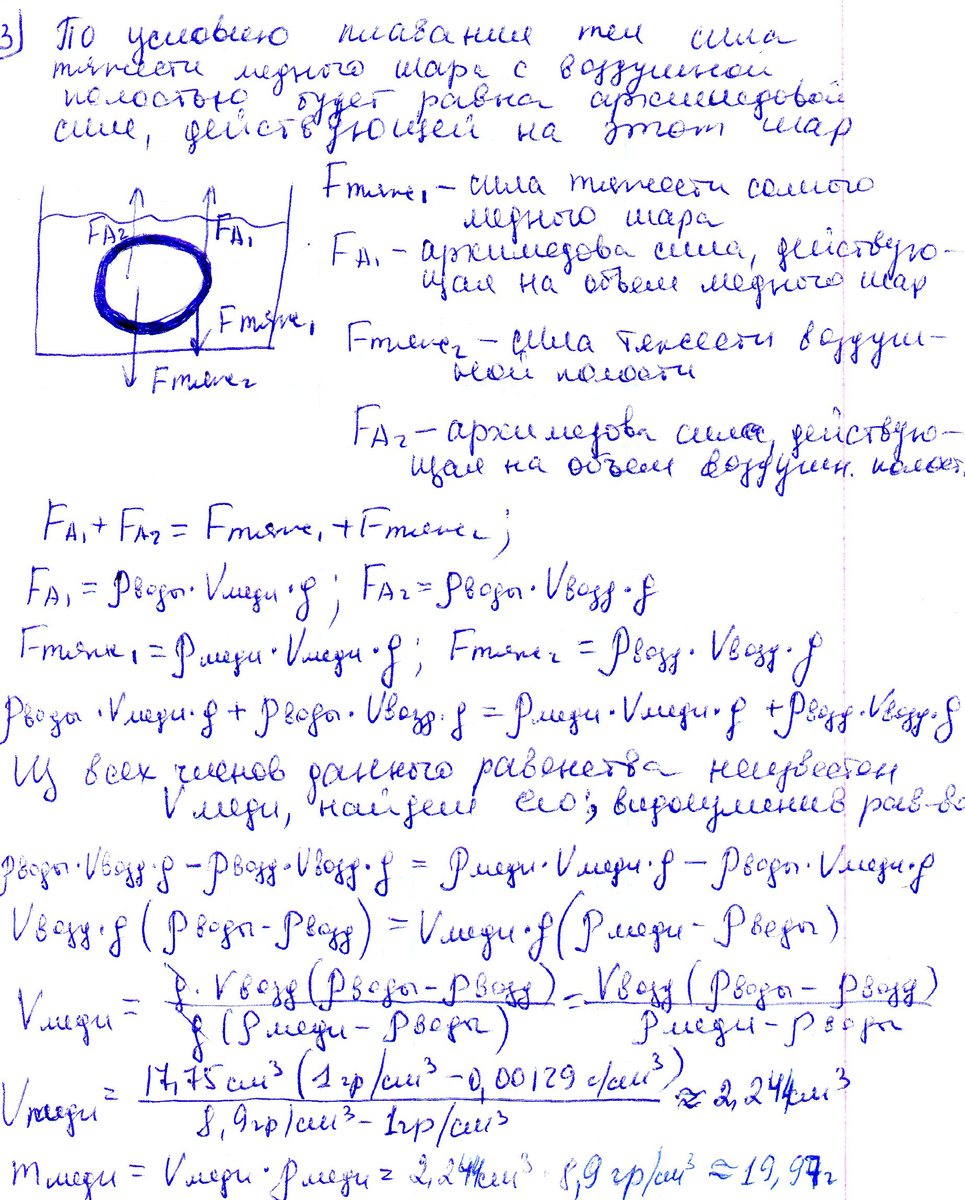 3) По условию плавания тел сила
тяжести медного шара с воздушной
полостью будет равна архимедовой
силе, действующей на этот шар
Fтяж₁ – сила тяжести самого
медного шара
FA₁ – архимедова сила, действую-
щая на объем медного шар
Fтяж₂ – сила тяжести воздуш-
ной полости
FA₂ – архимедова сила, действую-
щая на объем воздушн. полост.
FA₂
FA₁
Fтяж₁
Fтяж₂
FA₁ + FA₂ = Fтяж₁ + Fтяж₂;
FA₁ = ρводы · Vмеди · g; FA₂ = ρводы · Vвозд · g
Fтяж₁ = ρмеди · Vмеди · g; Fтяж₂ = ρвозд · Vвозд · g
ρводы · Vмеди · g + ρводы · Vвозд · g = ρмеди · Vмеди · g + ρвозд · Vвозд · g
Из всех членов данного равенства неизвестен
Vмеди, найдем его, видоизменив рав-во
ρводы · Vвозд · g – ρвозд · Vвозд · g = ρмеди · Vмеди · g – ρводы · Vмеди · g
Vвозд · g (ρводы – ρвозд) = Vмеди · g (ρмеди – ρводы)
Vмеди = g · Vвозд (ρводы – ρвозд) / g (ρмеди – ρводы) = Vвозд (ρводы – ρвозд) / ρмеди – ρводы
Vмеди = 17,75 см³ (1 гр/см³ – 0,00129 г/см³) / 8,9 гр/см³ – 1 гр/см³ ≈ 2,244 см³
mмеди = Vмеди · ρмеди = 2,244 см³ · 8,9 гр/см³ ≈ 19,97 г